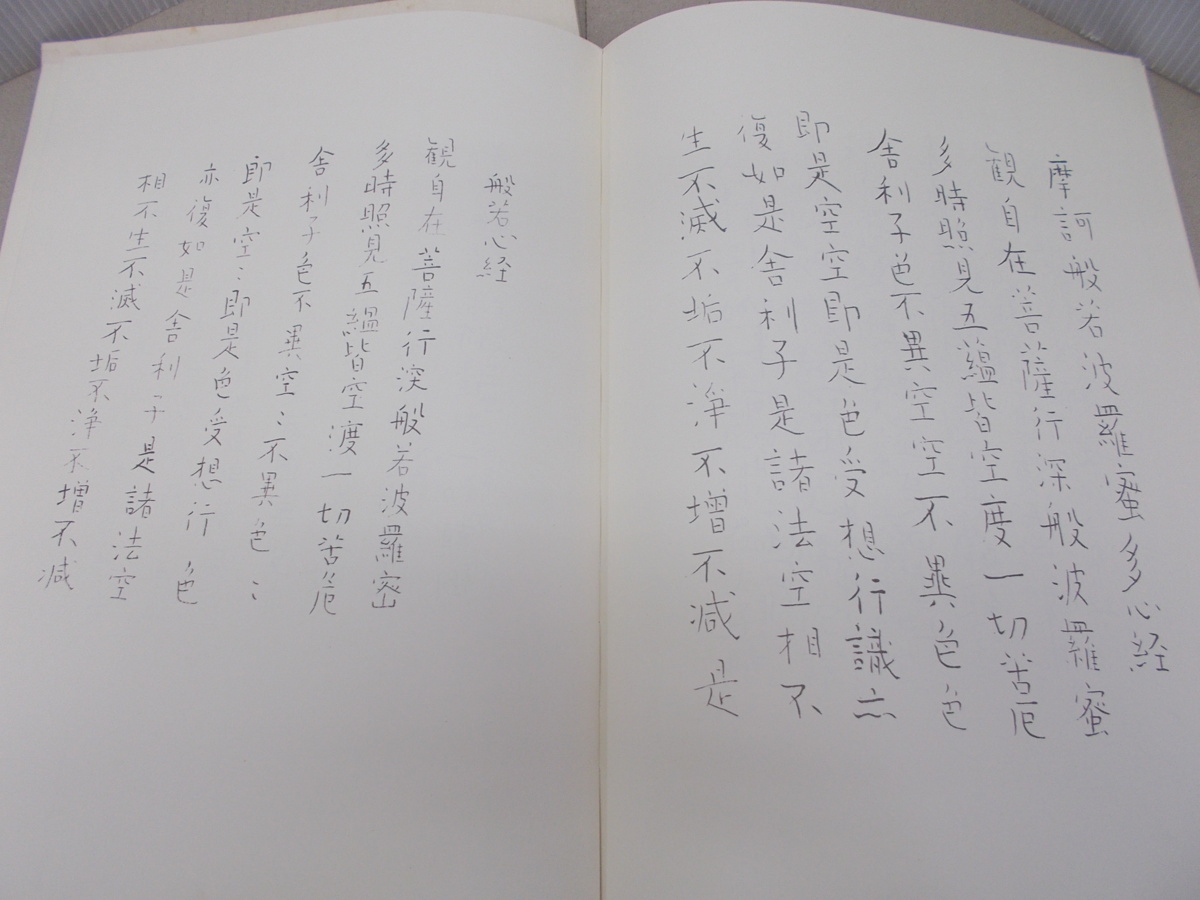 摩訶般若波羅蜜多心経
観自在菩薩行深般波羅蜜
多時照見五蘊皆空度一切苦厄
舎利子色不異空空不異色色
即是空空即是色受想行識亦
復如是舎利子是諸法空相不
生不滅不垢不浄不増不減是
般若心経
観自在菩薩行深般若波羅密
多時照見五縕皆空渡一切苦厄
舎利子色不異空〻不異色〻
即是空〻即是色受想行色
亦復如是舎利子是諸法空
相不生不滅不垢不浄不増不減